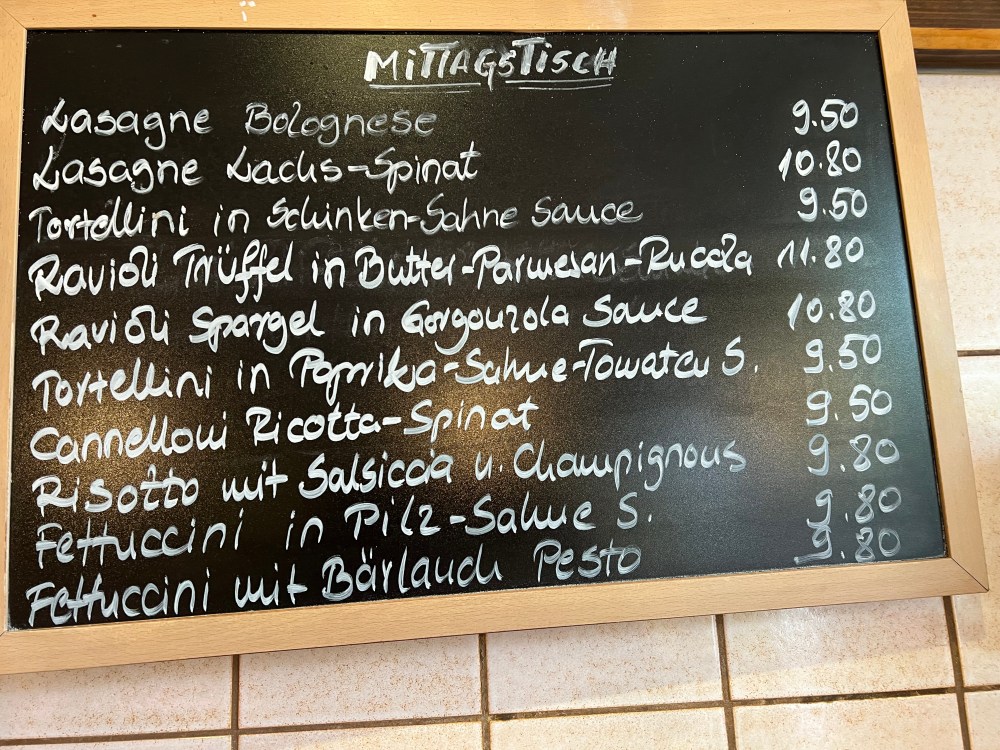 MITTAGSTISCH
Lasagne Bolognese 9.50
Lasagne Lachs-Spinat 10.80
Tortellini in Schinken-Sahne Sauce 9.50
Ravioli Trüffel in Butter-Parmesan-Rucola 11.80
Ravioli Spargel in Gorgonzola Sauce 10.80
Tortellini in Paprika-Sahne-Tomaten S. 9.50
Cannelloni Ricotta-Spinat 9.50
Risotto mit Salsiccia u. Champignons 9.80
Fettuccini in Pilz-Sahne S. 9.80
Fettuccini mit Bärlauch Pesto 9.80